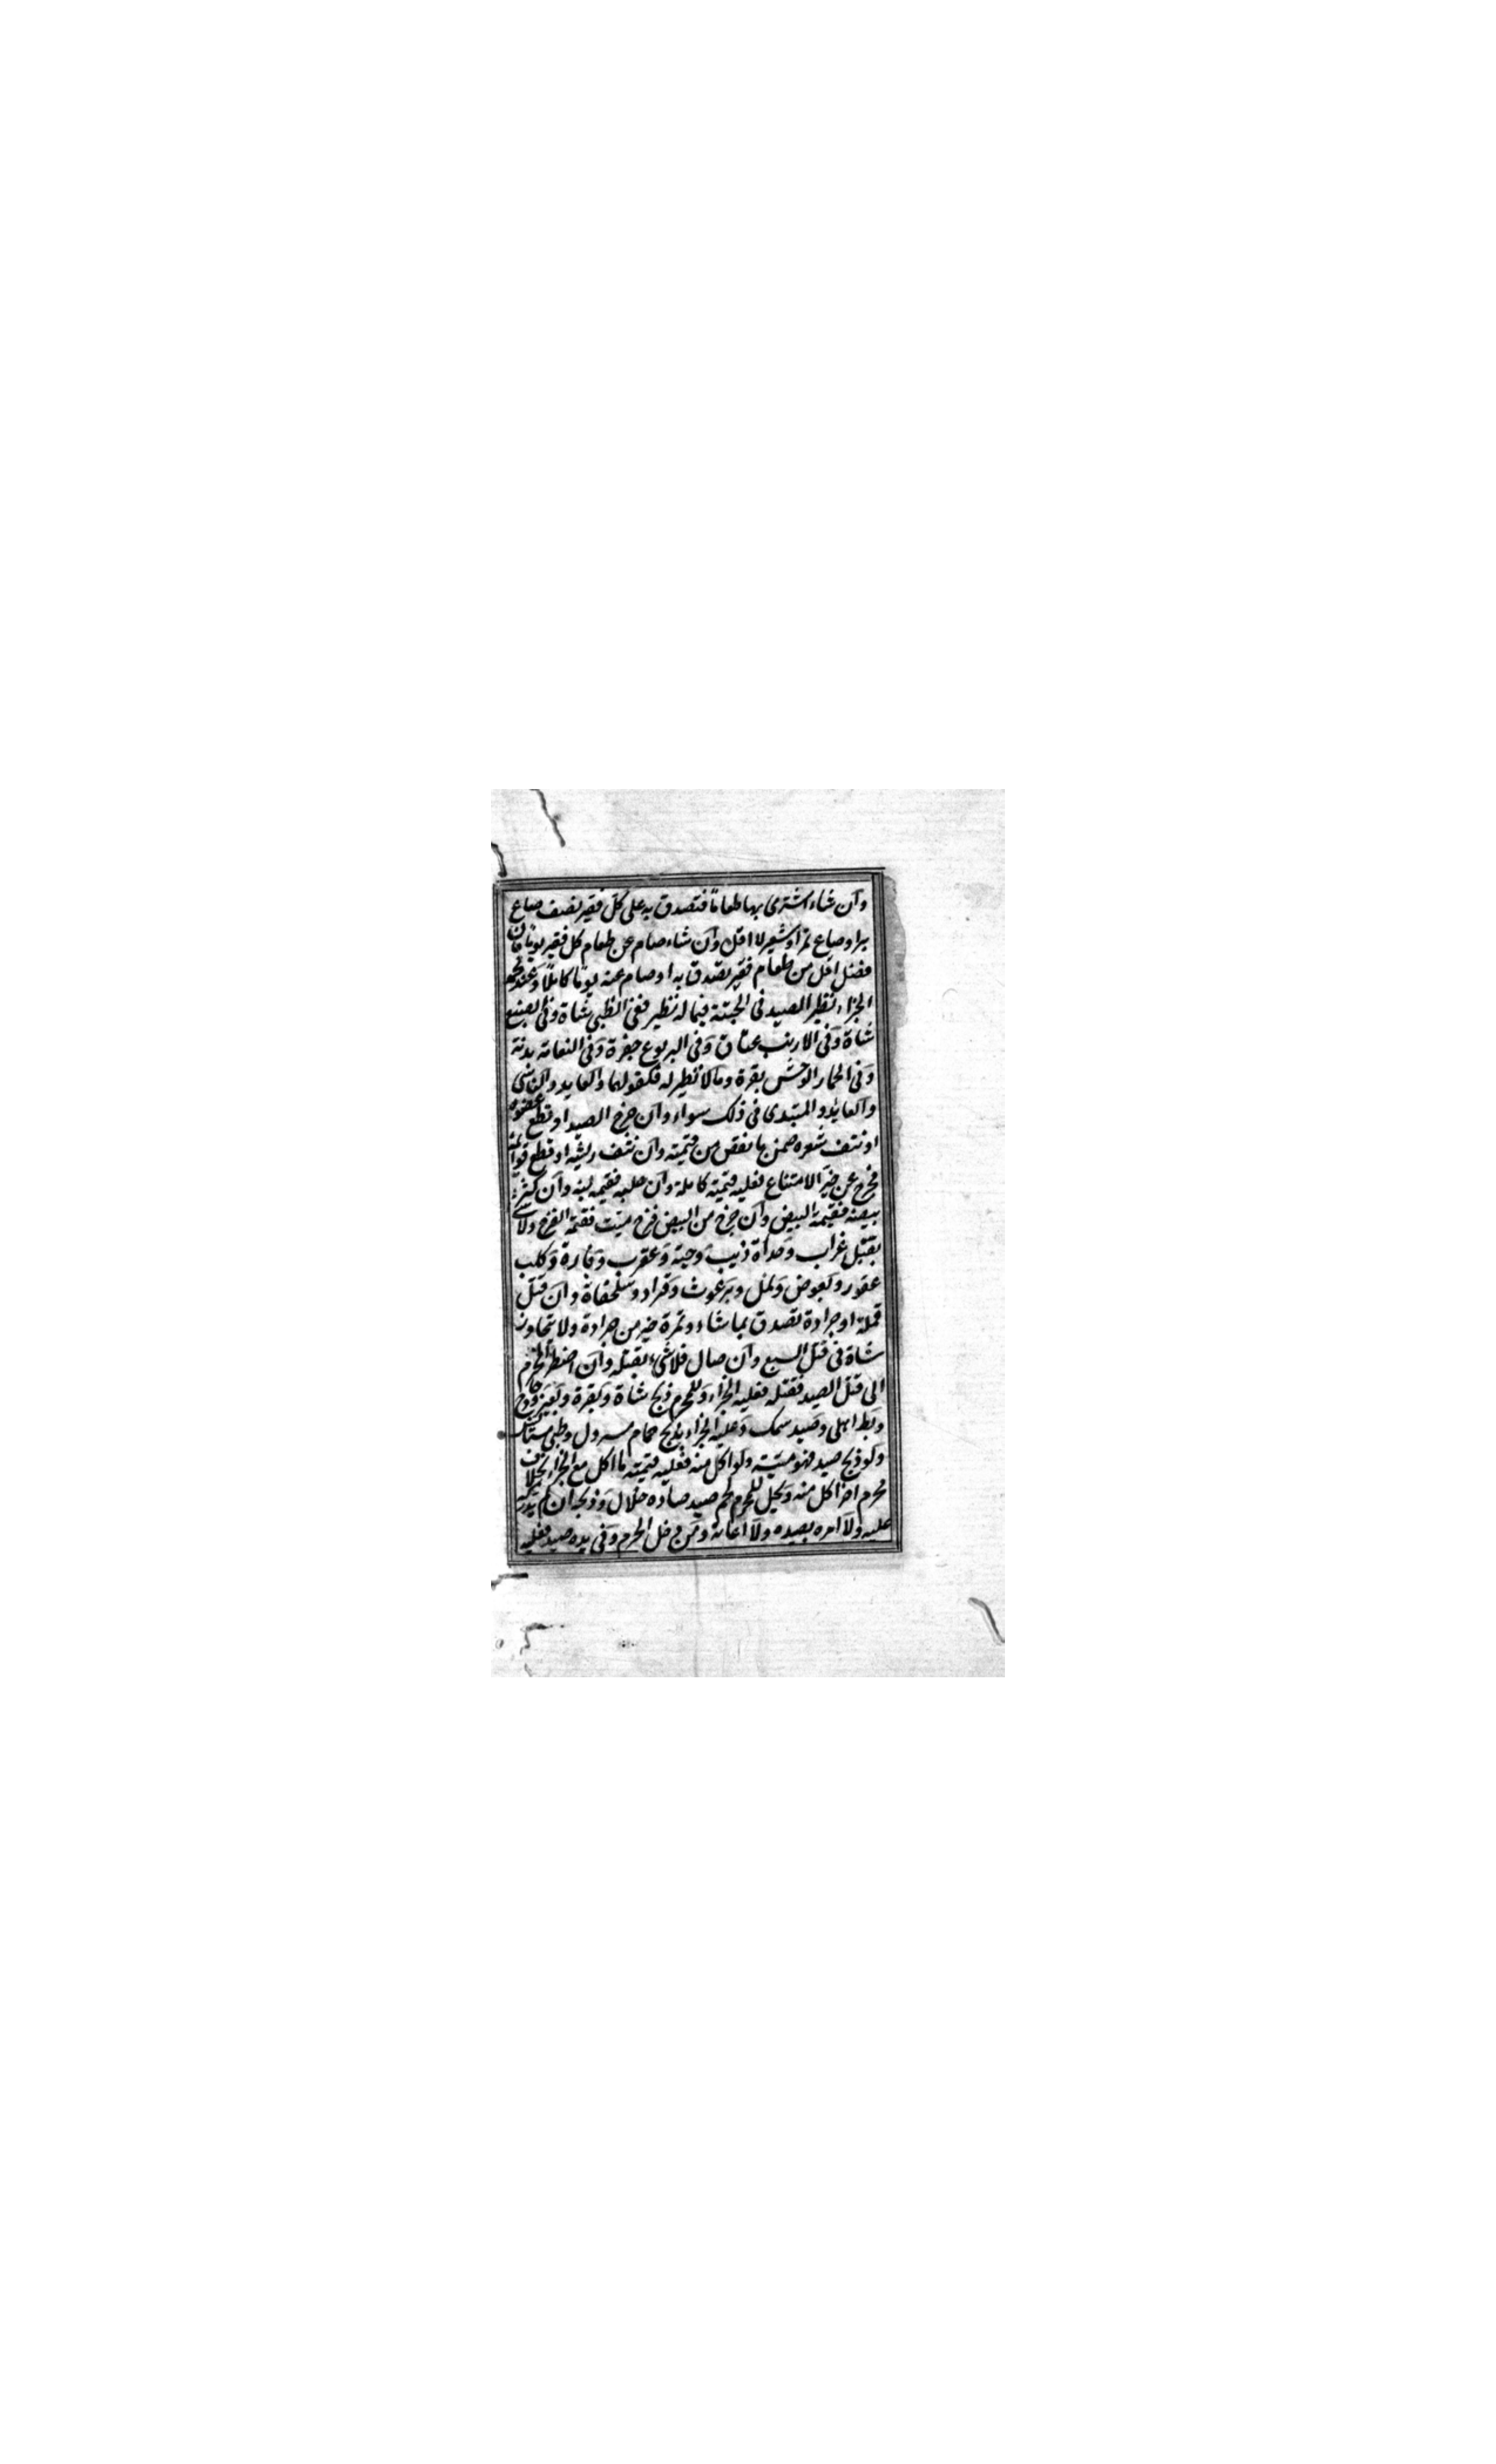 وان شاء اشترى بها طعاماً فتصدق به على كل فقير نصف صاع
براو صاع تمر او شعير لا اقل وان شاء صام عن طعام كل فقير يوما فان
فضل اقل من طعام فقير تصدق به او صام عنه يوما كاملا وعند محمد
الجزاء نظير الصيد فى الجثة فيما له نظير ففى الظبى شاة وفى الضبع
شاة وفى الارنب عناق وفى اليربوع جفرة وفى النعامة بدنة
وفى الحمار الوحش بقرة وما لا نظير له فكقولهما والعامد والناسى
والعايد والمبتدى فى ذلك سواء وان جرح الصيد او قطع عضوه
او نتف شعره ضمن ما نقص من قيمته وان نتف ريشه او قطع قوائمه
فخرج عن حيز الامتناع فعليه قيمته كاملة وان حلبه فقيمه لبنه وان كسر
بيضه فقيمة البيض وان خرج من البيض فرخ ميت فقيمة الفرخ ولا شئ
بقتل غراب وحداة وذيب وحية وعقرب وفارة وكلب
عقور وبعوض ونمل وبرغوث وقراد وسلحفاة وان قتل
قملة او جرادة تصدق بما شاء وتمرة خير من جرادة ولا يتجاوز
شاة فى قتل السبع وان صال فلا شئ بقتله وان اضطر المحرم
الى قتل الصيد فقتله فعليه الجزاء وللمحرم ذبح شاة وبقرة وبعير ودجاج
وبط اهلى وصيد سمك وعليه الجزاء بذبح حمام مسرول وظبى مستانس
ولو ذبح صيد فهو ميتة ولو اكل منه فعليه قيمته ما اكل مع الجزاء بخلاف
محرم اخر اكل منه ويحل للمحرم لحم صيد صاده حلال وذبحه ان لم يدل
عليه ولا امره بصيده ولا اعانه ومن دخل الحرم وفى يده صيد فعليه